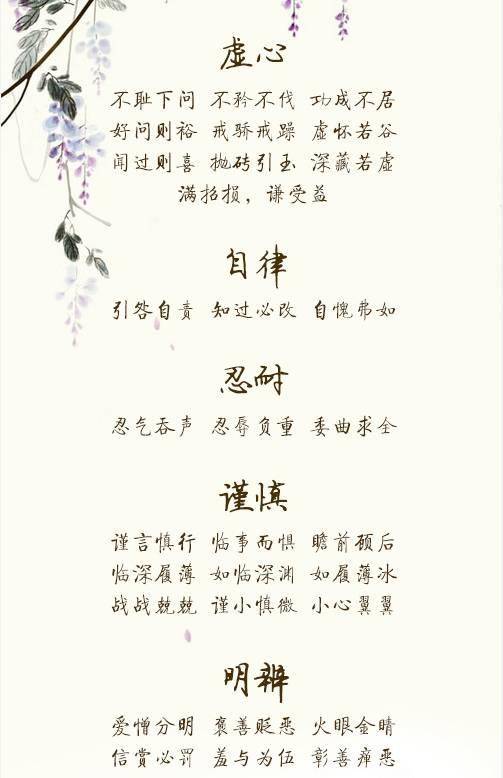 虚心
不耻下问 不矜不伐 功成不居
好问则裕 戒骄戒躁 虚怀若谷
闻过则喜 抛砖引玉 深藏若虚
满招损，谦受益
自律
引咎自责 知过必改 自愧弗如
忍耐
忍气吞声 忍辱负重 委曲求全
谨慎
谨言慎行 临事而惧 瞻前顾后
临深履薄 如临深渊 如履薄冰
战战兢兢 谨小慎微 小心翼翼
明辨
爱憎分明 褒善贬恶 火眼金睛
信赏必罚 羞与为伍 彰善瘅恶